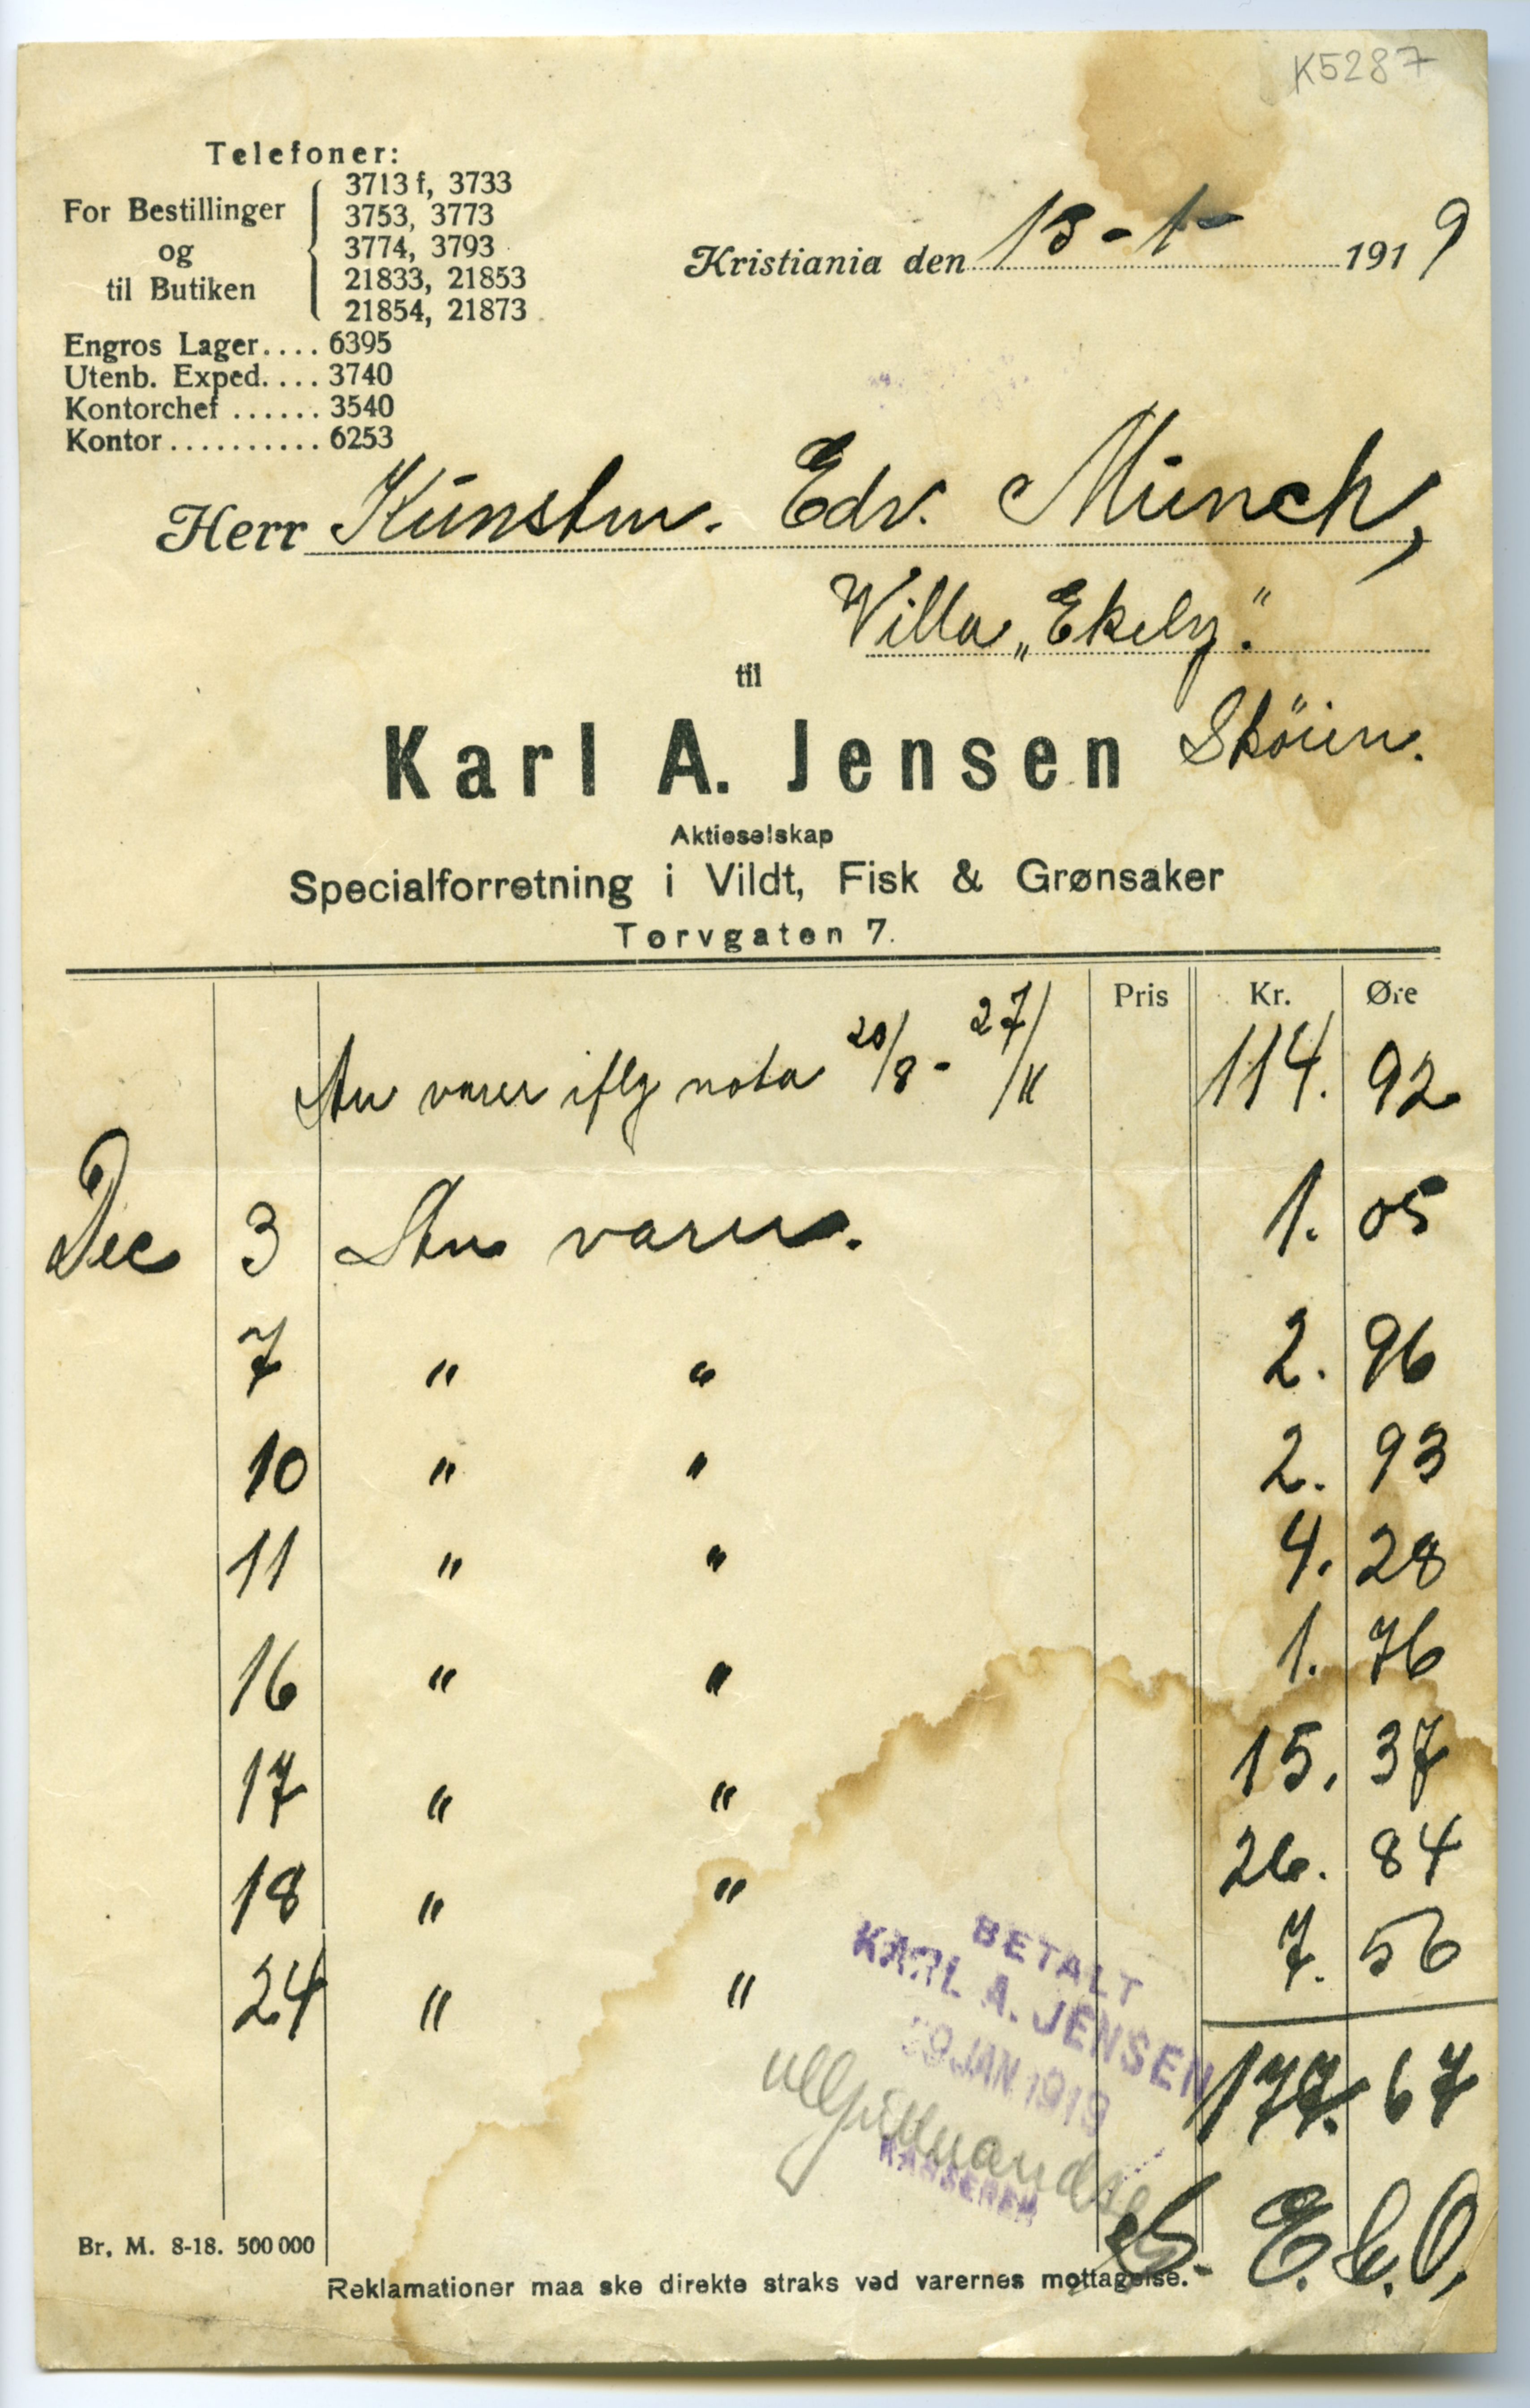 K5287
Telefoner:
For Bestillinger og til Butiken
3713 f, 3733
3753, 3773
3774, 3793
21833, 21853
21854, 21873
Engros Lager.... 6395
Utenb. Exped.... 3740
Kontorchef ...... 3540
Kontor .......... 6253
Kristiania den 13-1- 1919
Herr Kunstm. Edv. Münch,
Villa „Ekely“.
Sköien.
til
Karl A. Jensen
Aktieselskap
Specialforretning i Vildt, Fisk & Grønsaker
Torvgaten 7.
Pris Kr. Øre
An varer iflg nota 20/8 - 27/11 114. 92
Dec 3 An varer. 1. 05
7 " " 2. 96
10 " " 2. 93
11 " " 4. 28
16 " " 1. 76
17 " " 15. 37
18 " " 26. 84
24 " " 7. 56
177. 67
BETALT
KARL A. JENSEN
29 JAN. 1919
KASSEREN
S. E. & O.
Br. M. 8-18. 500 000
Reklamationer maa ske direkte straks ved varernes mottagelse.